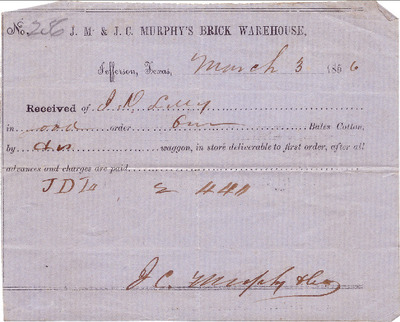 No. 286 J. M. & J. C. MURPHY'S BRICK WAREHOUSE,
Jefferson, Texas, March 3 1866
Received of J. D. Lilly
in good order One Bales Cotton,
by his waggon, in store deliverable to first order, after all
advances and charges are paid.
J D L 440
J. C. Murphy & Co